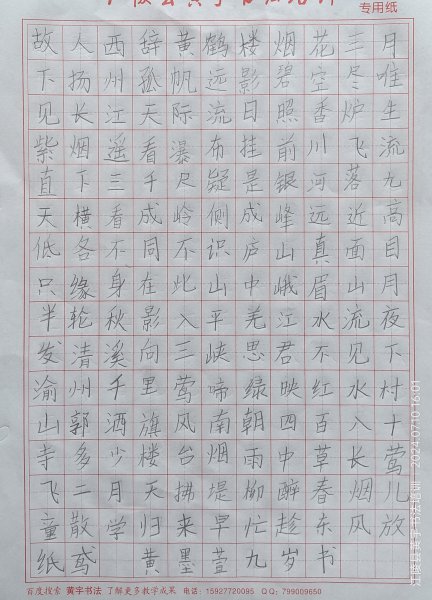 专用纸
故人西辞黄鹤楼烟花三月
下扬州孤帆远影碧空尽唯
见长江天际流日照香炉生
紫烟遥看瀑布挂前川飞流
直下三千尺疑是银河落九
天横看成岭侧成峰远近高
低各不同不识庐山真面目
只缘身在此山中峨眉山月
半轮秋影入平羌江水流夜
发清溪向三峡思君不见下
渝州千里莺啼绿映红水村
山郭酒旗风南朝四百八十
寺多少楼台烟雨中草长莺
飞二月天拂堤柳醉春烟儿
童散学归来早忙趁东风放
纸鸢 黄墨萱九岁书
百度搜索 黄字书法 了解更多教学成果 电话：15927720095 QQ：799009650
2024.07.10 16:01